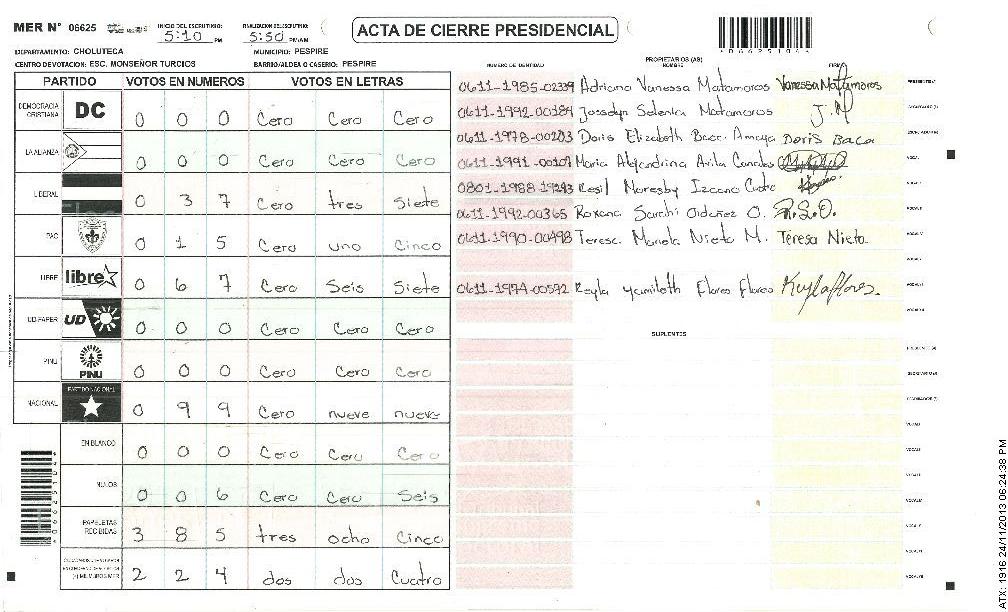 MER N° 06625 INICIO DEL ESCRUTINIO: 5:10 PM FINALIZACION DEL ESCRUTINIO: 5:50 PM/AM ACTA DE CIERRE PRESIDENCIAL
DEPARTAMENTO: CHOLUTECA MUNICIPIO: PESPIRE
CENTRO DE VOTACION: ESC. MONSEÑOR TURCIOS BARRIO/ALDEA O CASERIO: PESPIRE
PARTIDO VOTOS EN NUMEROS VOTOS EN LETRAS
DEMOCRACIA CRISTIANA DC 0 0 0 Cero Cero Cero
LA ALIANZA 0 0 0 Cero Cero Cero
LIBERAL 0 3 7 Cero tres Siete
PAC 0 1 5 Cero uno Cinco
LIBRE libre 0 6 7 Cero Seis Siete
UD-FAPER UD 0 0 0 Cero Cero Cero
PINU PINU 0 0 0 Cero Cero Cero
NACIONAL PARTIDO NACIONAL 0 9 9 Cero nueve nueve
EN BLANCO 0 0 0 Cero Cero Cero
NULOS 0 0 6 Cero Cero Seis
PAPELETAS RECIBIDAS 3 8 5 tres ocho Cinco
2 2 4 dos dos Cuatro
NUMERO DE IDENTIDAD PROPIETARIOS (AS) NOMBRE FIRMA
0611-1985-02339 Adriana Vanessa Matamoros Vanessa Matamoros
0611-1992-00184 Josselyn Selenia Matamoros J.M
0611-1978-00203 Doris Elizabeth Baca Amaya Doris Baca
0611-1991-00107 Maria Alejandrina Avila
0801-1988-19293 Moresby
0611-1992-00365 Roxana Sarahi Ordoñez O. R.S.O.
0611-1990-00498 Teresa Mariela Nieto M. Teresa Nieto
0611-1974-00592 Keyla Yamileth Flores Flores Keylaflores.
SUPLENTES
ATX: 1916 24/11/2013 06:24:38 PM